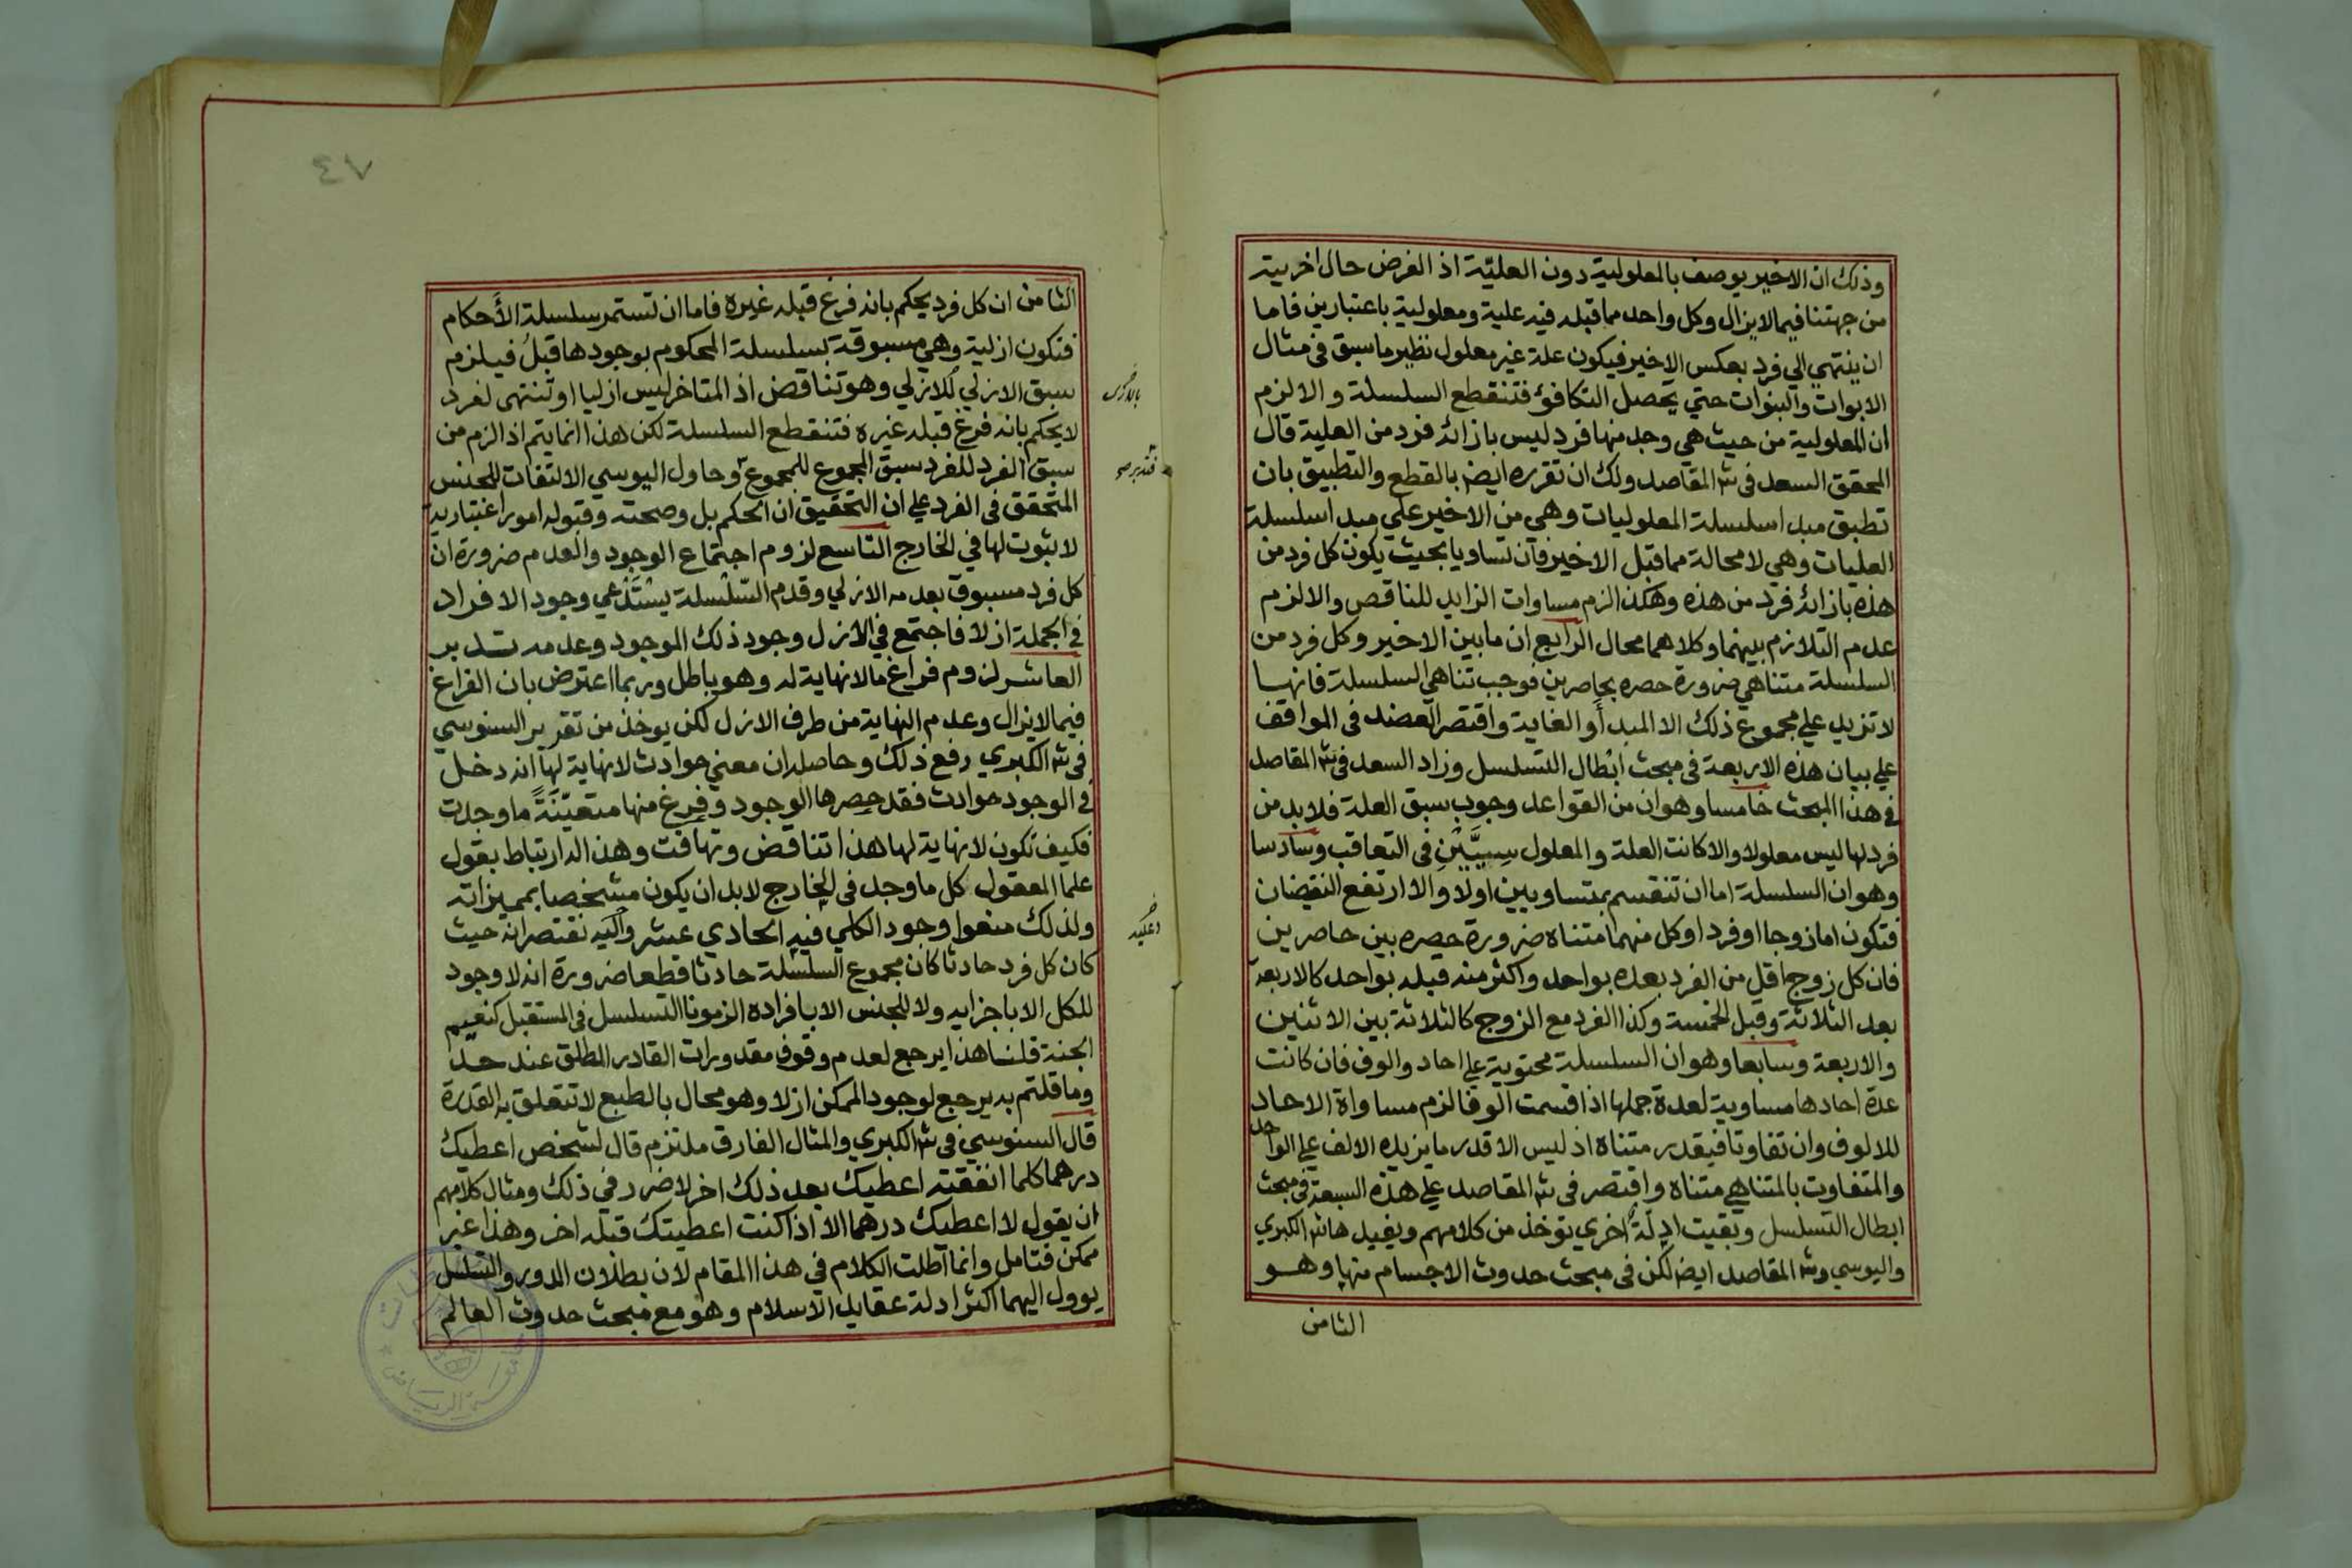 وذلك ان الاخير يوصف بالمعلولية دون العلية اذ الفرض حال اخريته
من جهتنا فيما لايزال وكل واحد مما قبله فيه علية ومعلولية باعتبارين فاما
ان ينتهي الي فرد بعكس الاخير فيكون علة غير معلول نظير ما سبق في مثال
الابوات والبنوات حتي يحصل التكافؤ فتنقطع السلسلة والا لزم
ان المعلولية من حيث هي وجد منها فرد ليس بازائه فرد من العلية قال
المحقق السعد في شر المقاصد ولك ان تقرره ايض بالقطع والتطبيق بان
تطبق مبدا سلسلة المعلوليات وهي من الاخير علي مبدا سلسلة
العليات وهي لا محالة مما قبل الاخير فان تساويا بحيث يكون كل فرد من
هذه بازائه فرد من هذه وهكذا لزم مساوات الزايد للناقص والا لزم
عدم التلازم بينهما وكلاهما محال الرابع ان ما بين الاخير وكل فرد من
السلسلة متناهي ضرورة حصره بحاصرين فوجب تناهي السلسلة فانها
لا تزيد علي مجموع ذلك الا المبدأ والغاية واقتصر العضد في المواقف
علي بيان هذه الاربعة في مبحث ابطال التسلسل وزاد السعد في شر المقاصد
في هذا المبحث خامسا وهو ان من القواعد وجوب سبق العلة فلابد من
فرد لها ليس معلولا والا كانت العلة والمعلول سِيَّيْنِ في التعاقب وسادسا
وهو ان السلسلة اما ان تنقسم بمتساويين اولا والا ارتفع النقيضان
فتكون اما زوجا او فردا وكل منهما متناه ضرورة حصره بين حاصرين
فان كل زوج اقل من الفرد بعده بواحد واكثر منه قبله بواحد كالاربعة
بعد الثلاثة وقبل الخمسة وكذا الفرد مع الزوج كالثلاثة بين الاثنين
والاربعة وسابعا وهو ان السلسلة محتوية علي احاد والوف فان كانت
عدة احادها مساوية لعدة جملها اذا قسمت الوفا لزم مساواة الاحاد
للالوف وان تفاوتا فبقدر متناه اذ ليس الا قدر ما يزيده الالف علي الواحد
والمتفاوت بالمتناهي متناه واقتصر في شر المقاصد علي هذه السبعة في مبحث
ابطال التسلسل وبقيت ادلة اخري توخذ من كلامهم وبقيد هاشر الكبري
واليوسي وشر المقاصد ايض لكن في مبحث حدوث الاجسام منها وهو
الثامن
٤٧
الثامن ان كل فرد يحكم بانه فرغ قبله غيره فاما ان تستمر سلسلة الأحكام
فتكون ازلية وهي مسبوقة بسلسلة المحكوم بوجودها قبلُ فيلزم
سبق الازلي للازلي وهو تناقض اذ المتاخر ليس ازليا او تنتهي لفرد
لا يحكم بانه فرغ قبله غيره فتنقطع السلسلة لكن هذا انما يتم اذا لزم من
سبق الفرد للفرد سبق المجموع للمجموع وحاول اليوسي الالتفات للجنس
المتحقق في الفرد علي ان التحقيق ان الحكم بل وصحته وقبوله امور اعتبارية
لا ثبوت لها في الخارج التاسع لزوم اجتماع الوجود والعدم ضرورة ان
كل فرد مسبوق بعدمه الازلي وقدم السلسلة يستدعي وجود الافراد
في الجملة ازلا فاجتمع في الازل وجود ذلك الموجود وعدمه تدبر
العاشر لزوم فراغ ما لا نهاية له وهو باطل وربما اعترض بان الفراغ
فيما لايزال وعدم النهاية من طرف الازل لكن يوخذ من تقرير السنوسي
في شر الكبري دفع ذلك وحاصله ان معني حوادث لا نهاية لها انه دخل
في الوجود حوادث فقد حصرها الوجود وفرغ منها متعينة ما وجدت
فكيف تكون لا نهاية لها هذا تناقض وتهافت وهذا له ارتباط بقول
علما المعقول كل ما وجد في الخارج لابد ان يكون مشخصا بمميزاته
ولذلك منعوا وجود الكلي فيه الحادي عشر واليه نقتصر انه حيث
كان كل فرد حادثا كان مجموع السلسلة حادثا قطعا ضرورة انه لا وجود
للكل الا باجزايه ولا للجنس الا بافراده الزمونا التسلسل في المستقبل كنعيم
الجنة قلنا هذا يرجع لعدم وقوف مقدورات القادر المطلق عند حد
وما قلتم به يرجع لوجود الممكن ازلا وهو محال بالطبع لا تتعلق به القدرة
قال السنوسي في شر الكبري والمثال الفارق ملتزم قال لشخص اعطيك
درهما كلما انفقته اعطيك بعد ذلك اخر لا ضرر في ذلك ومثال كلامهم
ان يقول لا اعطيك درهما الا اذا كنت اعطيتك قبله اخر وهذا غير
ممكن فتامل وانما اطلت الكلام في هذا المقام لان بطلان الدور والتسلسل
يوول اليهما اكثر ادلة عقايد الاسلام وهو مع مبحث حدوث العالم